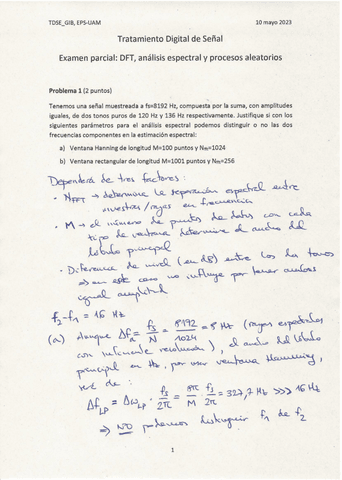 TDSE_GIB, EPS-UAM 10 mayo 2023
Tratamiento Digital de Señal
Examen parcial: DFT, análisis espectral y procesos aleatorios
Problema 1 (2 puntos)
Tenemos una señal muestreada a fs=8192 Hz, compuesta por la suma, con amplitudes
iguales, de dos tonos puros de 120 Hz y 136 Hz respectivamente. Justifique si con los
siguientes parámetros para el análisis espectral podemos distinguir o no las dos
frecuencias componentes en la estimación espectral:
a) Ventana Hanning de longitud M=100 puntos y Nfft=1024
b) Ventana rectangular de longitud M=1001 puntos y Nfft=256
Dependerá de tres factores:
· NFFT → determina la separación espectral entre
muestras/rayas en frecuencia
· M → el número de puntos de datos con cada
tipo de ventana determina el ancho del
lóbulo principal
· Diferencia de nivel (en dB) entre los dos tonos
⇒ en este caso no influye por tener ambos
igual amplitud
f₂-f₁ = 16 Hz
(a) aunque Δf = fs/N = 8192/1024 = 8 Hz (rayas espectrales
con suficiente resolución), el ancho del lóbulo
principal en Hz, por usar ventana Hanning,
será de:
Δf LP = Δω LP · fs/2π = 8π/M · fs/2π = 327,7 Hz >>> 16 Hz
⇒ NO podemos distinguir f₁ de f₂
1